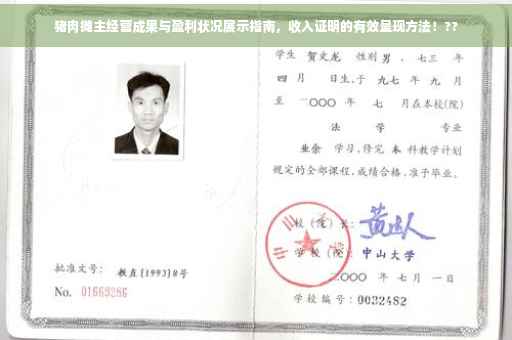 猪肉摊主经营成果与盈利状况展示指南，收入证明的有效呈现方法！??
学生 贺文龙 性别 男 、七三 年
四 月 日生，于 九七 年 九 月
至 二〇〇〇 年 七 月在本校(院)
法 学 专业
业余 学习，修完 本 科教学计划
规定的全部课程，成绩合格，准予毕业。
校（院）长：
学校（院）：中山大学
二〇〇〇 年 七 月 一 日
学校编号：0032482
批准文号： 教直[1993]8号
No. 01669286